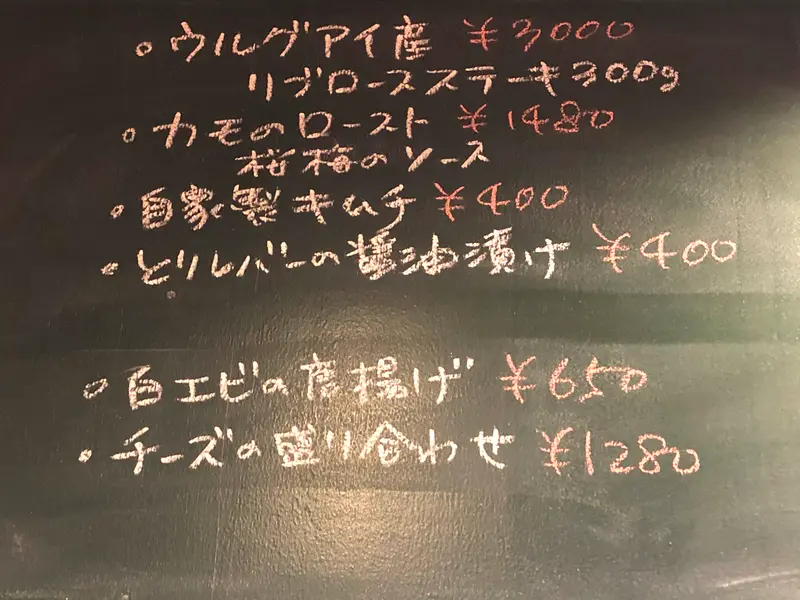 ・ウルグアイ産 ¥3000
リブロースステーキ300g
・カモのロースト ¥1480
桜梅のソース
・自家製キムチ ¥400
・とりレバーの醤油漬け ¥400
・白エビの唐揚げ ¥650
・チーズの盛り合わせ ¥1280